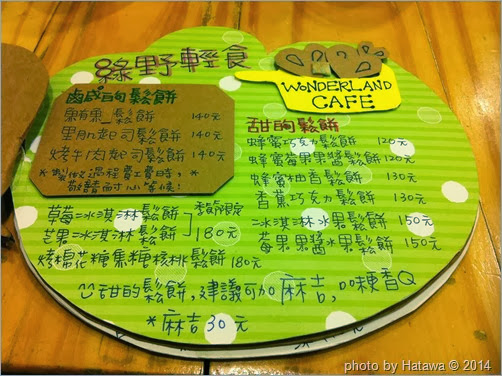 綠野輕食
WONDERLAND
CAFE
鹹的鬆餅
燻三鬆餅 140元
里肌起司鬆餅 140元
烤牛肉起司鬆餅 140元
*製做過程費工費時,*
敬請耐心等候!
甜的鬆餅
蜂蜜巧克力鬆餅 120元
蜂蜜莓果果醬鬆餅 120元
蜂蜜柚香鬆餅 130元
香蕉巧克力鬆餅 130元
冰淇淋水果鬆餅 150元
莓果果醬水果鬆餅 150元
草莓冰淇淋鬆餅
芒果冰淇淋鬆餅
季節限定
180元
烤棉花糖焦糖核桃鬆餅 180元
甜的鬆餅,建議可加麻吉,口感香Q
*麻吉30元
photo by Hatawa © 2014